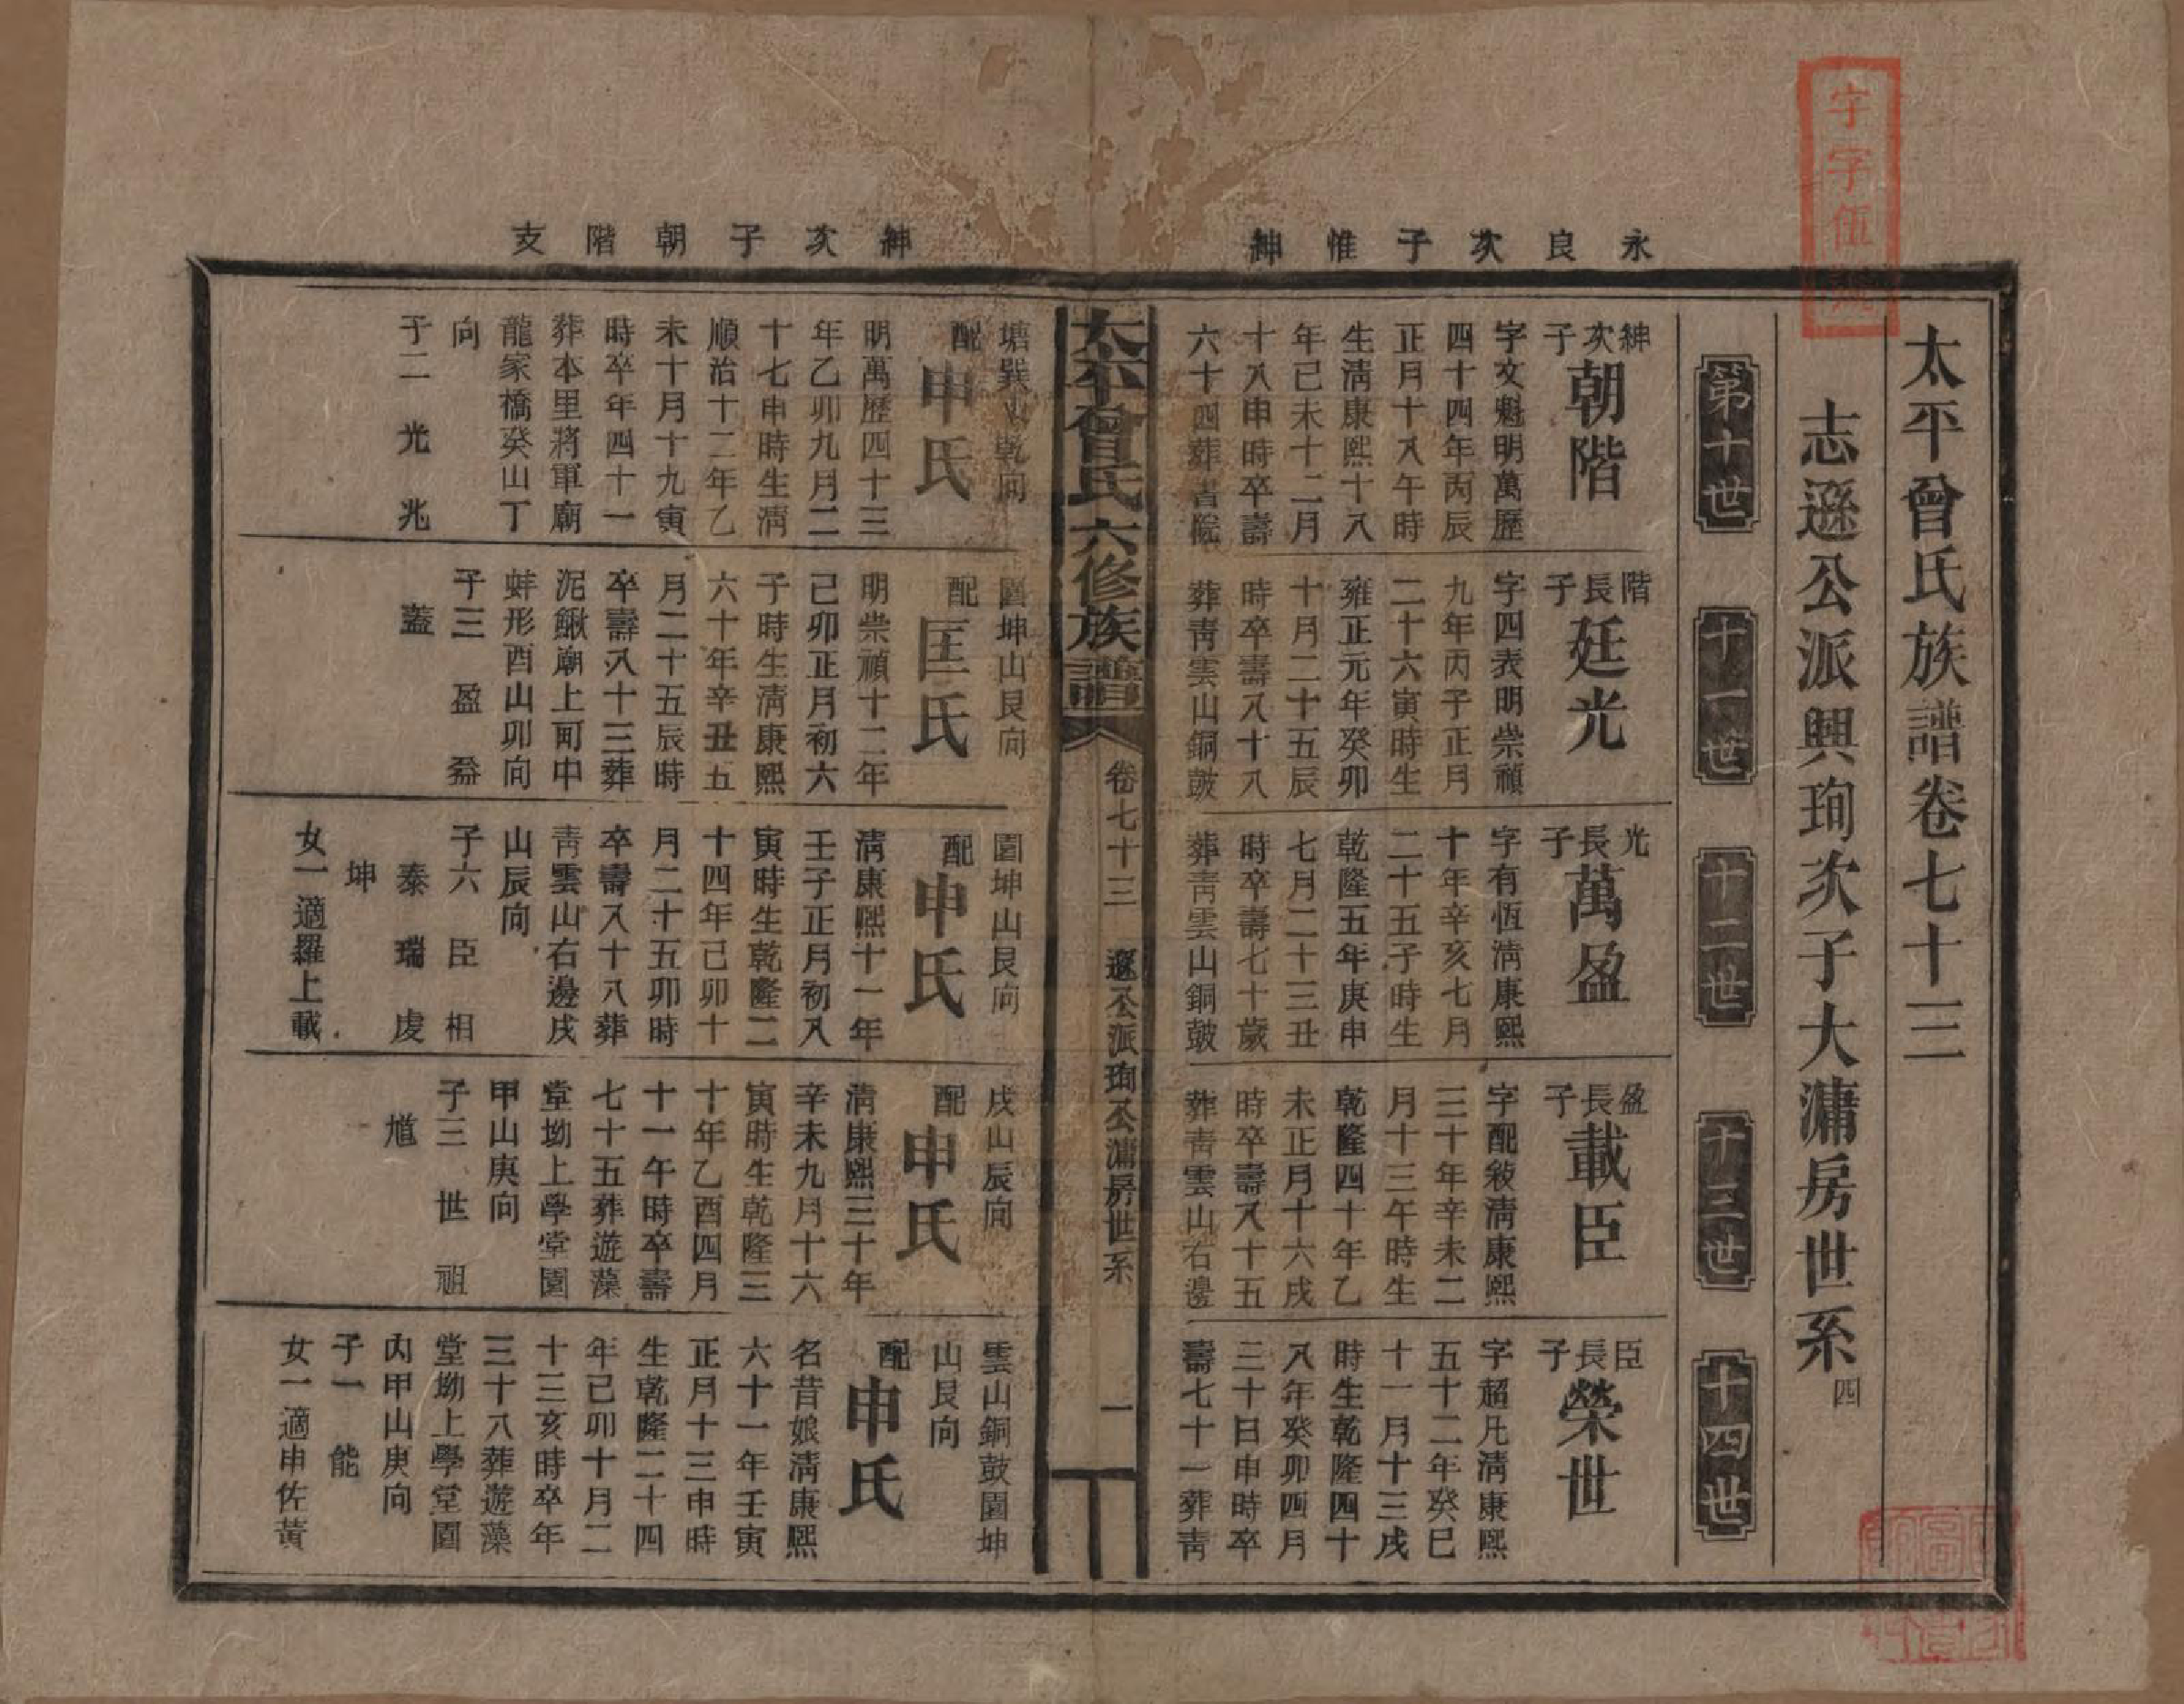 字字伍號
太平曾氏族譜卷七十三
志遜公派興珣次子大潚房世系四
第十世
十一世
十二世
十三世
十四世
永良次子惟紳
紳次子朝階支
紳次子
朝階
字文魁明萬歷
四十四年丙辰
正月十八午時
生淸康熙十八
年己未十二月
十八申時卒壽
六十四葬書院
塘巽山乾向
配
申氏
明萬歷四十三
年乙卯九月二
十七申時生淸
順治十二年乙
未十月十九寅
時卒年四十一
葬本里將軍廟
龍家橋癸山丁
向
子二 光 兆
階長子
廷光
字四表明崇禎
九年丙子正月
二十六寅時生
雍正元年癸卯
十月二十五辰
時卒壽八十八
葬靑雲山銅鼓
園坤山艮向
配
匡氏
明崇禎十二年
己卯正月初六
子時生淸康熙
六十年辛丑五
月二十五辰時
卒壽八十三葬
泥鰍廟上町中
蚌形酉山卯向
子三 盈 益
蓋
光長子
萬盈
字有恆淸康熙
十年辛亥七月
二十五子時生
乾隆五年庚申
七月二十三丑
時卒壽七十歲
葬靑雲山銅鼓
園坤山艮向
配
申氏
淸康熙十一年
壬子正月初八
寅時生乾隆二
十四年己卯十
月二十五卯時
卒壽八十八葬
靑雲山右邊戌
山辰向
子六 臣 相
泰 瑞 虔
坤
女一適羅上載
盈長子
載臣
字配敍淸康熙
三十年辛未二
月十三午時生
乾隆四十年乙
未正月十六戌
時卒壽八十五
葬靑雲山右邊
戌山辰向
配
申氏
淸康熙三十年
辛未九月十六
寅時生乾隆三
十年乙酉四月
十一午時卒壽
七十五葬遊藻
堂坳上學堂園
甲山庚向
子三 世 祖
馗
臣長子
榮世
字超凡淸康熙
五十二年癸巳
十一月十三戌
時生乾隆四十
八年癸卯四月
三十日申時卒
壽七十一葬靑
雲山銅鼓園坤
山艮向
配
申氏
名昔娘淸康熙
六十一年壬寅
正月十三申時
生乾隆二十四
年己卯十月二
十三亥時卒年
三十八葬遊藻
堂坳上學堂園
內甲山庚向
子一 能
女一適申佐黃
太平曾氏六修族譜
卷七十三
遜公派珣公潚房世系
一